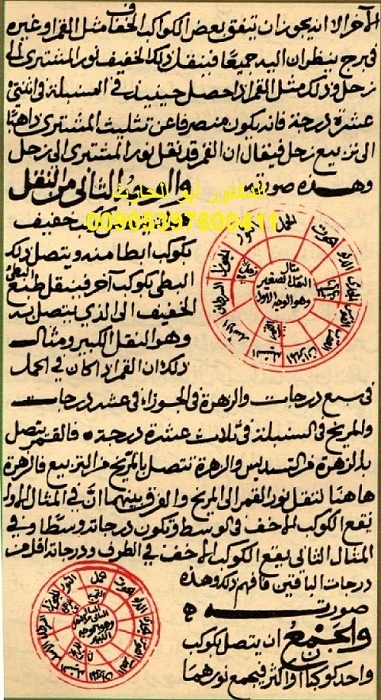 الآخر الا انه يجوز ان تتفق بعض الكواكب الخفاف مثل القمر او غيره
في برج ينظران اليه جميعا فينقل ذلك الخفيف نور المشتري الى
زحل وذلك مثل القمر اذا حصل حينئذ في السنبلة واثنتي
عشرة درجة فانه يكون منصرفا عن تثليث المشتري ذاهبا
الى تربيع زحل فيقال ان القمر قد نقل نور المشتري الى زحل
وهذه صورته والوجه الثاني من النقل
الدكتور أبو الحارث
00905397600411
كوكب خفيف
بكوكب ابطا منه ويتصل ذلك
البطي بكوكب آخر فينقل طبع
الخفيف الى الذي يتصل به
وهو النقل الكبير ومثال
ذلك ان القمر اذا كان في الحمل
مثال
النقل الصغير
وهو الوجه الاول
في سبع درجات والزهرة في الجوزاء في عشر درجات
والمريخ في السنبلة في ثلاث عشرة درجة فالقمر يتصل
بالزهرة من التسديس والزهرة تتصل بالمريخ من التربيع فالزهرة
هاهنا تنقل نور القمر الى المريخ والفرق بينهما ان في المثال الاول
يقع الكوكب الاخف في الوسط وتكون درجاته وسطا وفي
المثال الثاني يقع الكوكب الاخف في الطرف ودرجاته اقل من
درجات الباقين فافهم ذلك وهذه
صورته
والجمع ان يتصل بكوكب
واحد كوكبان او اكثر فيجمع نورهما